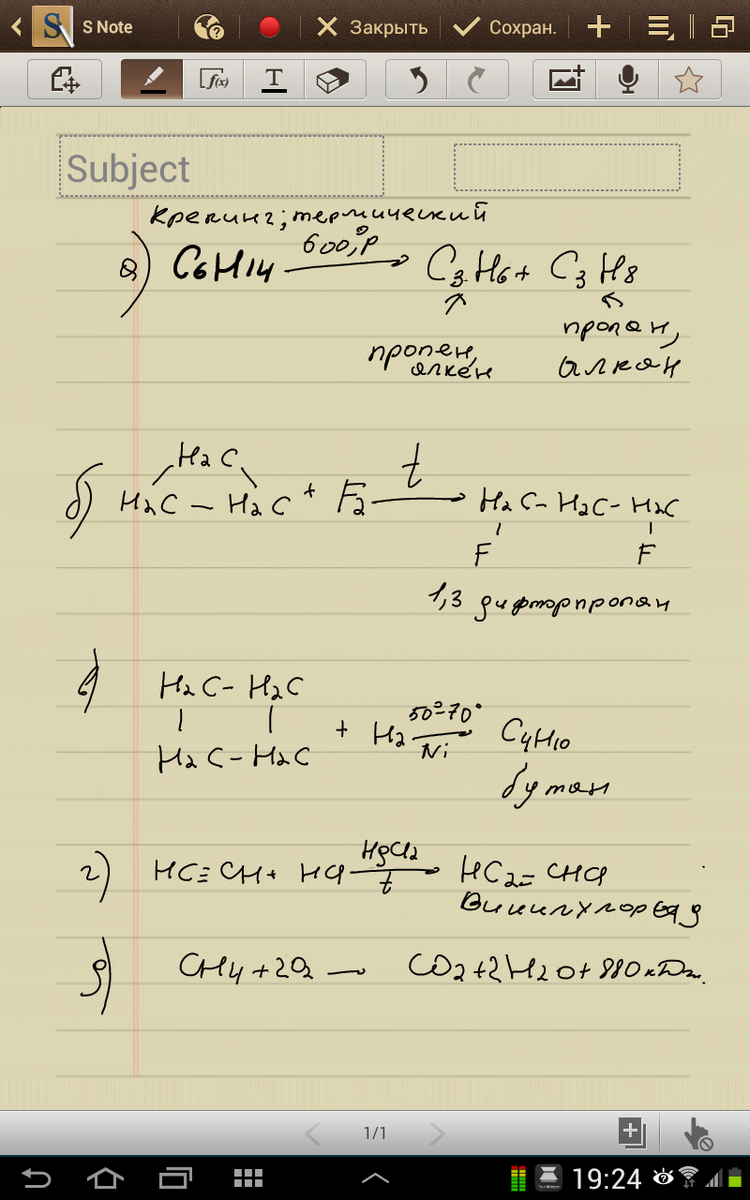 S Note
Закрыть
Сохран.
f(x)
T
Subject
Крекинг; термический
а) C6H14 600°, P → C3H6 + C3H8
пропен, алкен
пропан, алкан
H2C
б) H2C — H2C + F2 t → H2C - H2C - H2C
F F
1,3 дифторпропан
в) H2C - H2C
H2C - H2C + H2 50°-70° Ni → C4H10
бутан
г) HC≡CH + HCl HgCl2 t → HC2=CHCl
Винилхлорид
д) CH4 + 2O2 — CO2 + 2H2O + 880 кДж.
1/1
19:24